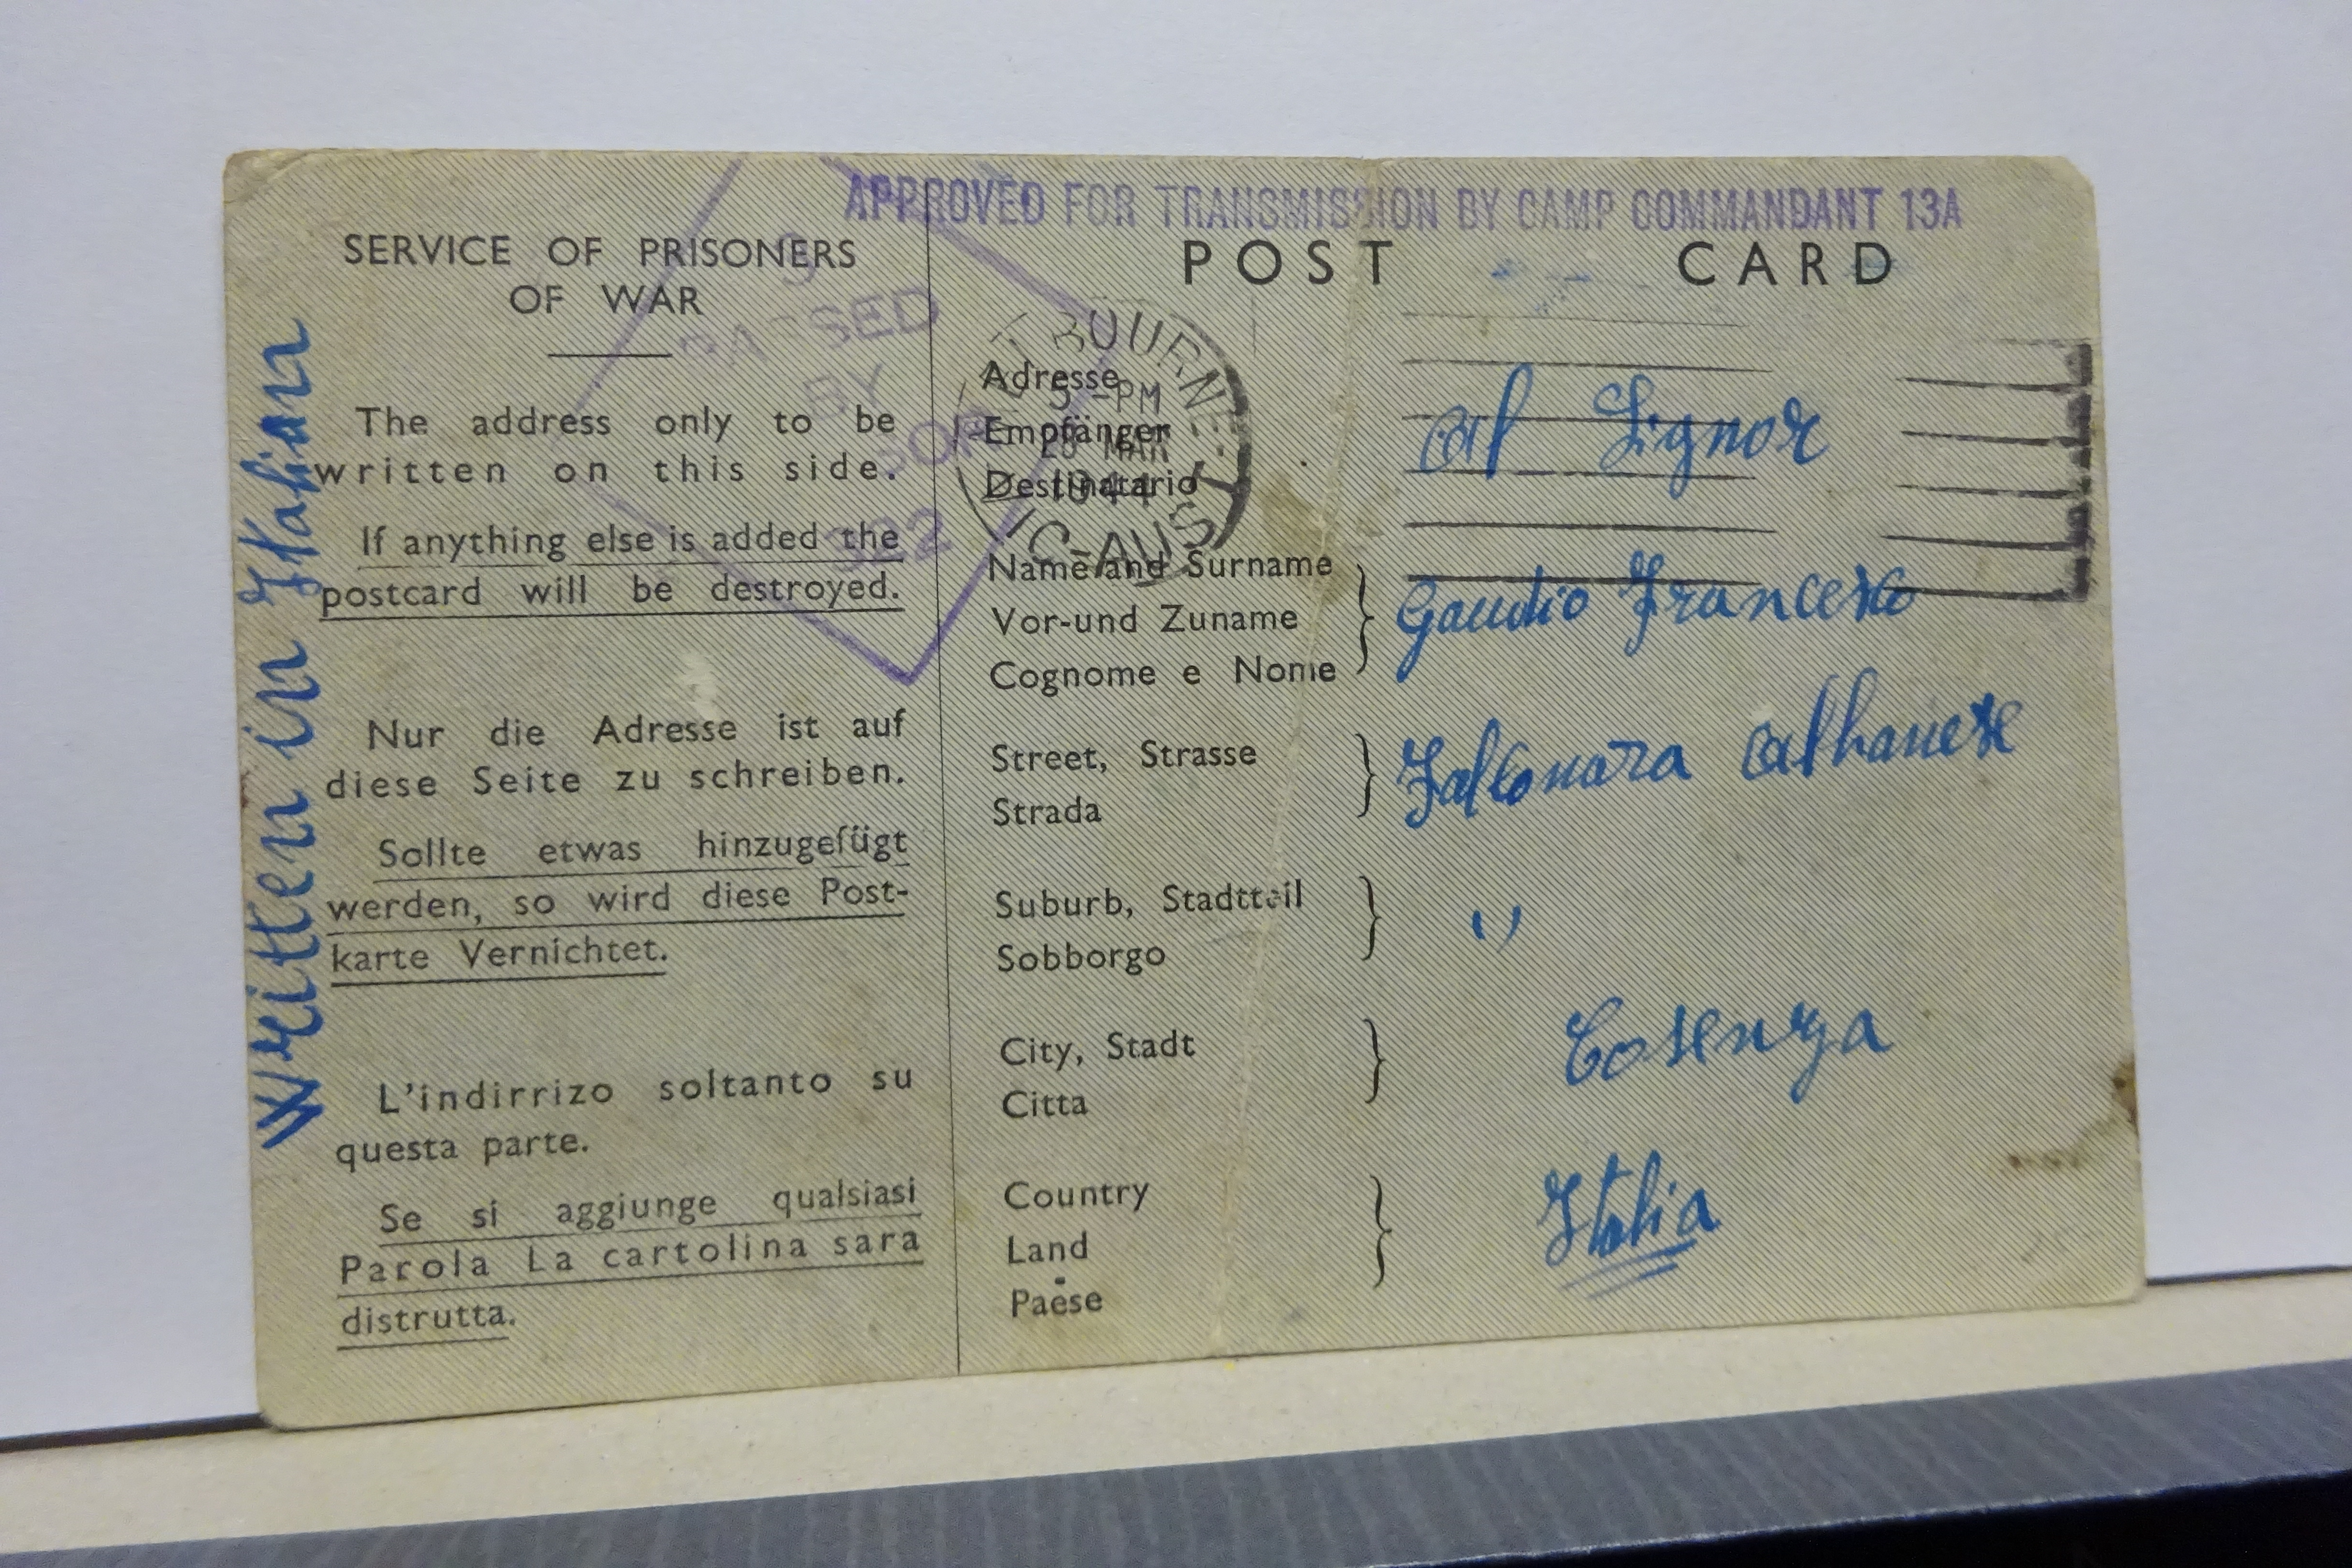 APPROVED FOR TRANSMISSION BY CAMP COMMANDANT 13A
SERVICE OF PRISONERS
OF WAR
The address only to be
written on this side.
If anything else is added the
postcard will be destroyed.
Nur die Adresse ist auf
diese Seite zu schreiben.
Sollte etwas hinzugefügt
werden, so wird diese Post-
karte Vernichtet.
L'indirrizo soltanto su
questa parte.
Se si aggiunge qualsiasi
Parola La cartolina sara
distrutta.
Written in Italian
PASSED
BY
322
POST CARD
MELBOURNE
5-PM
MAR
1944
VIC-AUST
Adresse
Empfänger
Destinatario
Al Signor
Name and Surname
Vor-und Zuname
Cognome e Nome
Gaudio Francesco
Street, Strasse
Strada
Falconara Albanese
Suburb, Stadtteil
Sobborgo
"
City, Stadt
Citta
Cosenza
Country
Land
Paese
Italia